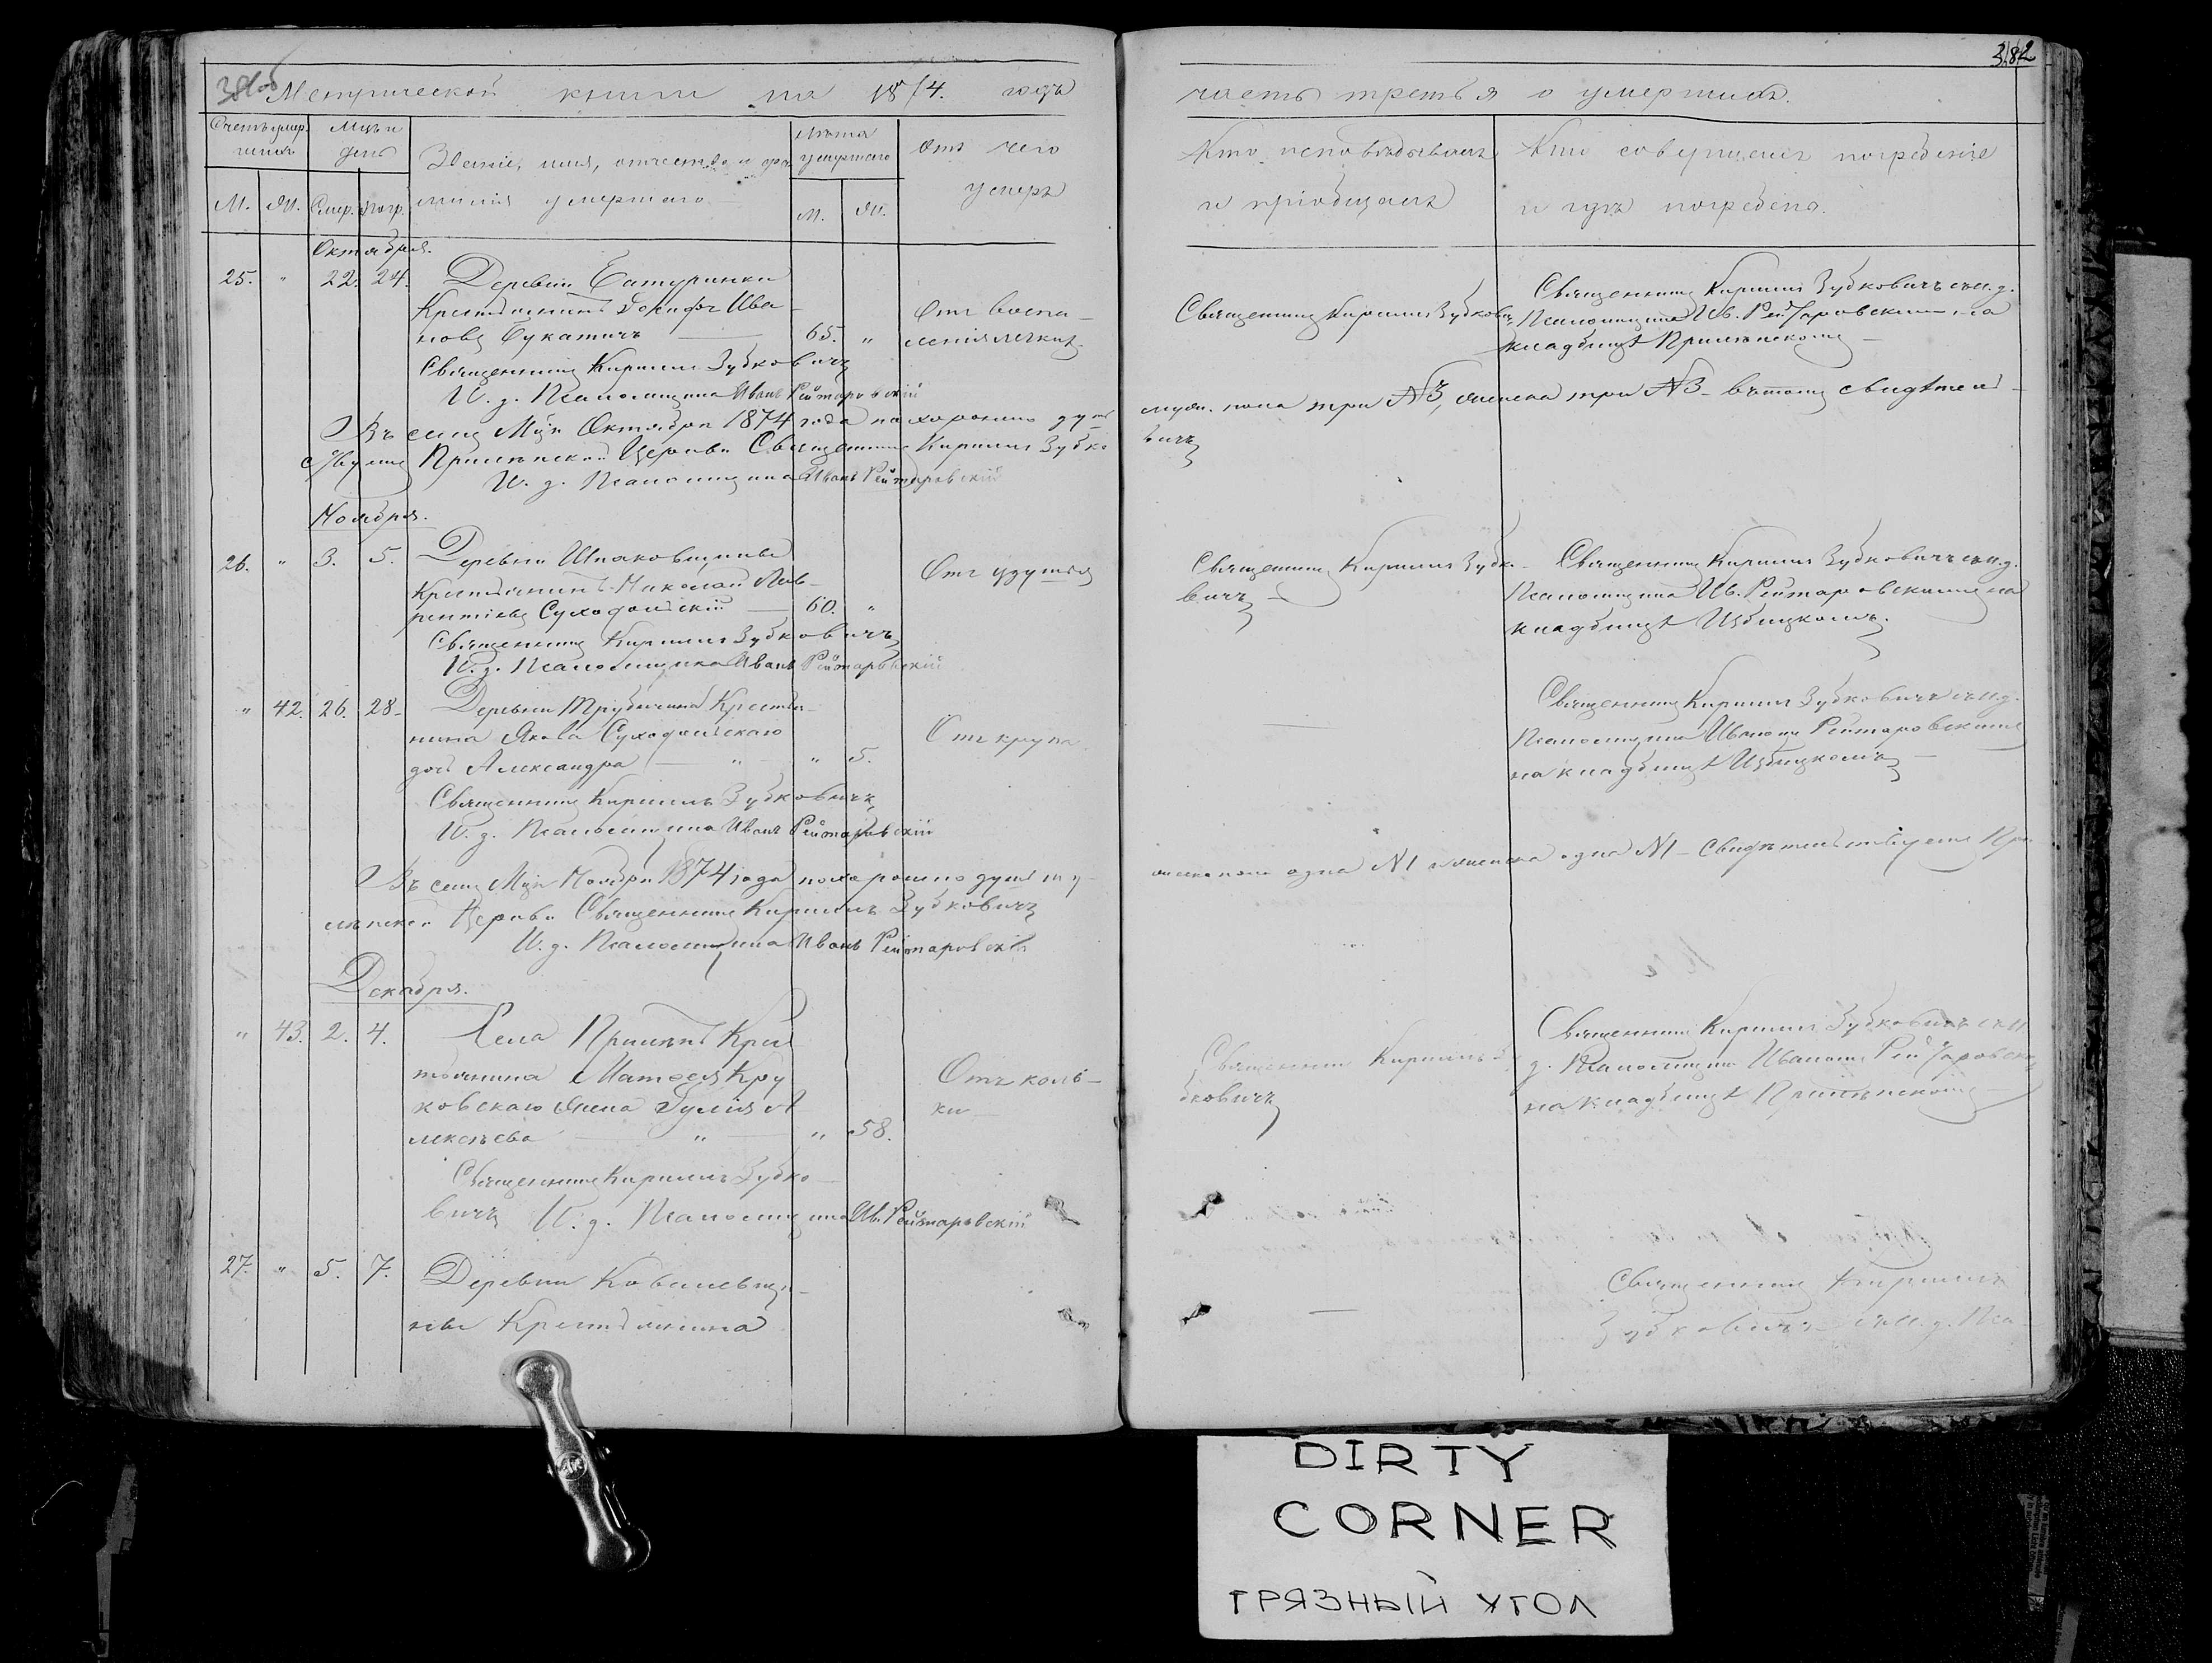 381об
Метрической книги на 1874. годъ
Счетъ умер-
шихъ
Мцъ и
день
Званіе, имя, отчество и фа-
милія умершаго
Лѣта
умершаго
Отъ чего
умеръ
М. Ж. Смер. Погр. М. Ж.
Октября.
25. " 22. 24. Деревни Батуринки
Крестьянинъ Іосифъ Ива-
новъ Букатичъ — 65. "
Отъ воспа-
ленія легкихъ
Священникъ Кириллъ Зубковичъ
И. д. Псаломщика Иванъ Рейтаровскій
Въ семъ Мцѣ Октябрѣ 1874 года похоронено душъ
Прилѣпской Церкви Священникъ Кириллъ Зубко
И. д. Псаломщика Иванъ Рейтаровскій
Ноября.
26. " 3. 5. Деревни Шпаковщины
Крестьянинъ Николай Лав-
рентіевъ Суходольскій — 60. "
Отъ удушья
Священникъ Кириллъ Зубковичъ
И. д. Псаломщика Иванъ Рейтаровскій
" 42. 26. 28. Деревни Трубичина Крестья-
нина Якова Суходольскаго
дочь Александра — " " 5.
Отъ крупа
Священникъ Кириллъ Зубковичъ
И. д. Псаломщика Иванъ Рейтаровскій
Въ семъ Мцѣ Ноябрѣ 1874 года похоронено душъ му-
лѣпской Церкви Священникъ Кириллъ Зубковичъ
И. д. Псаломщика Иванъ Рейтаровскій
Декабря.
" 43. 2. 4. Села Прилѣпъ Крес
тьянина Матѳея Кру
ковскаго жена Юлія А
лексѣева — " " 58.
Отъ коль-
ки
Священникъ Кириллъ Зубко-
вичъ И. д. Псаломщика Ив. Рейтаровскій
27. " 5. 7. Деревни Ковалевщи-
ны Крестьянина
382
часть третья о умершихъ.
Кто исповѣдывалъ
и пріобщалъ
Кто совершалъ погребеніе
и гдѣ погребены.
Священникъ Кириллъ Зубкович
Священникъ Кириллъ Зубковичъ съ и. д.
Псаломщика Ив. Рейтаровскимъ, на
кладбищѣ Прилѣпскомъ
пола три №3, женска три №3 - въ томъ свидѣтель-
вичъ
Священникъ Кириллъ Зубко-
вичъ
Священникъ Кириллъ Зубковичъ съ и. д.
Псаломщика Ив. Рейтаровскимъ на
кладбищѣ Избицкомъ.
—
Священникъ Кириллъ Зубковичъ съ и. д.
Псаломщика Иваномъ Рейтаровскимъ
на кладбищѣ Избицкомъ
пола одна №1 женска одна №1 - Свидѣтельствуемъ При-
Священникъ Кириллъ Зу
бковичъ
Священникъ Кириллъ Зубковичъ съ и.
д. Псаломщика Иваномъ Рейтаровским
на кладбищѣ Прилѣпскомъ
—
Священникъ Кириллъ
Зубковичъ съ и. д. Пса-
DIRTY
CORNER
ГРЯЗНЫЙ УГОЛ